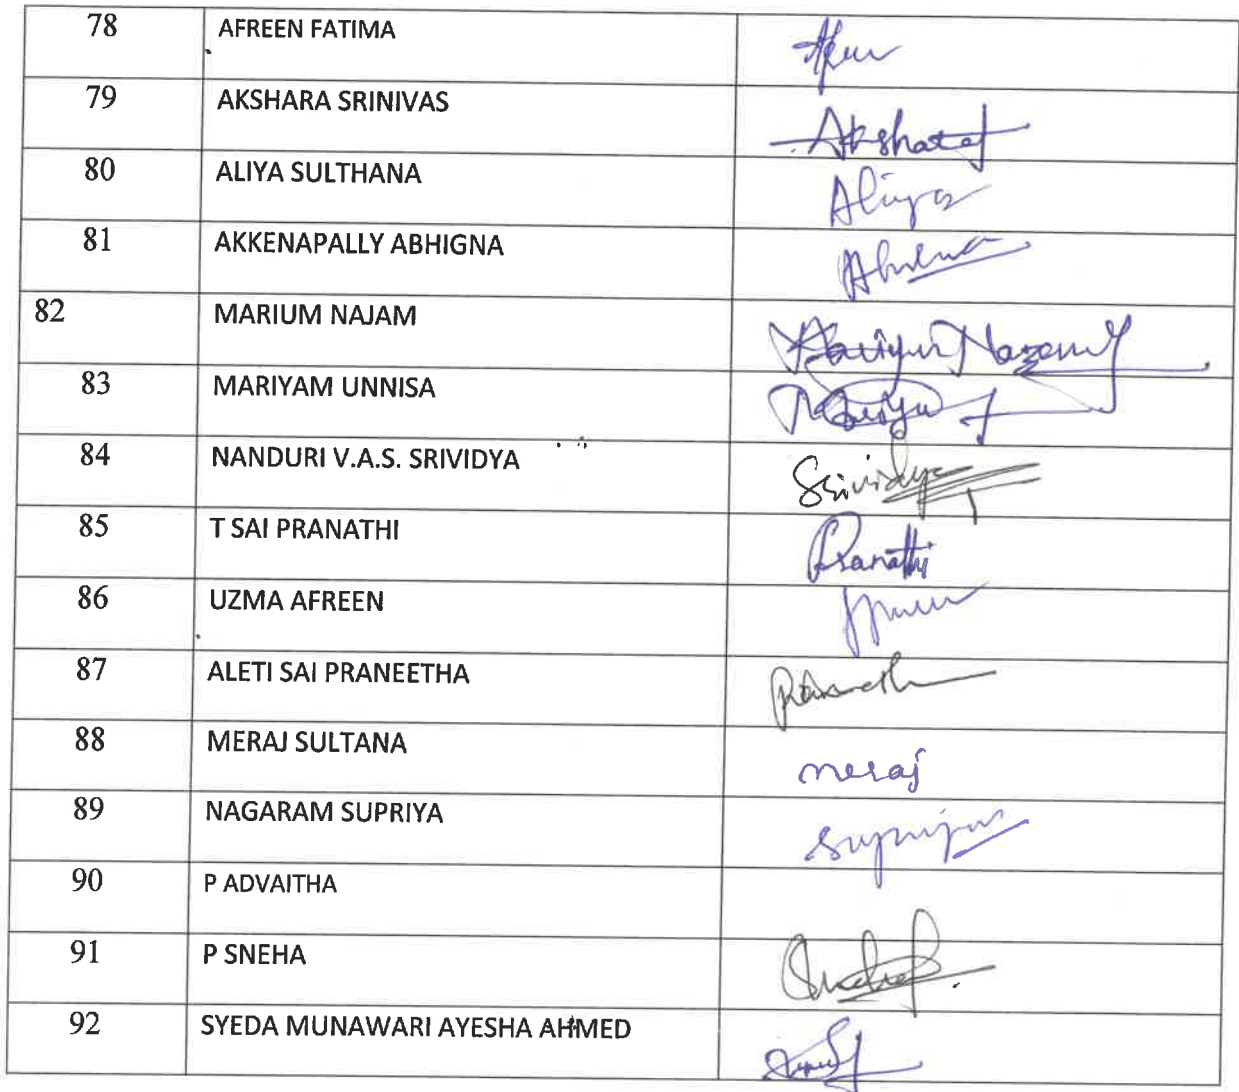 78 AFREEN FATIMA
79 AKSHARA SRINIVAS Akshara
80 ALIYA SULTHANA Aliya
81 AKKENAPALLY ABHIGNA
82 MARIUM NAJAM
83 MARIYAM UNNISA
84 NANDURI V.A.S. SRIVIDYA Srividya
85 T SAI PRANATHI Pranathi
86 UZMA AFREEN
87 ALETI SAI PRANEETHA
88 MERAJ SULTANA meraj
89 NAGARAM SUPRIYA Supriya
90 P ADVAITHA
91 P SNEHA
92 SYEDA MUNAWARI AYESHA AHMED